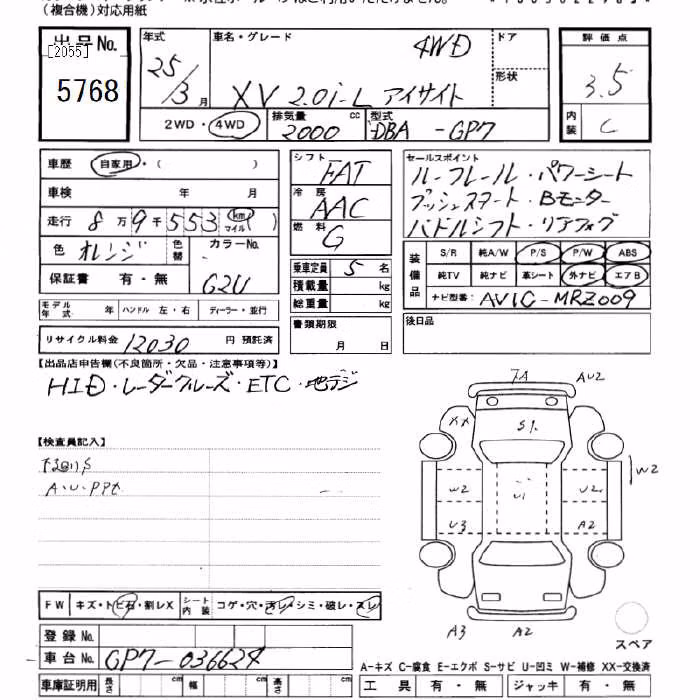 (複合機)対応用紙
出品No.
[2055]
5768
年式
25/3月
車名・グレード
4WD
XV 2.0i-L アイサイト
ドア
形状
評価点
3.5
内装
C
2WD・4WD
排気量
2000
cc
型式
DBA-GP7
車歴
自家用・( )
車検 年 月
走行 8万9千553 km マイル( )
色 オレンジ
色替
カラーNo.
G2U
保証書 有・無
モデル年式 年
ハンドル 左・右
ディーラー・並行
リサイクル料金 12030 円 預託済
シフト
FAT
冷房
AAC
燃料
G
乗車定員 5 名
積載量 kg
総重量 kg
書類期限
月 日
セールスポイント
ルーフレール・パワーシート
プッシュスタート・Bモニター
パドルシフト・リアフォグ
装備品
S/R 純A/W P/S P/W ABS
純TV 純ナビ 革シート 外ナビ エアB
ナビ型番: AVIC-MRZ009
後日品
【出品店申告欄(不良箇所・欠品・注意事項等)】
HID・レーダークルーズ・ETC・地デジ
【検査員記入】
下回りS
A・U・PPt
7A
AU2
XX
S1
W2
U1
U2
W2
U3
A2
A3
A2
スペア
FW
キズ・トビ石・割レX
シート内装
コゲ・穴・汚レ・シミ・破レ・スレ
登録No.
車台No.
GP7-036624
車庫証明用
長さ cm 幅 cm 高さ cm
A-キズ C-腐食 E-エクボ S-サビ U-凹ミ W-補修 XX-交換済
工具 有・無 ジャッキ 有・無